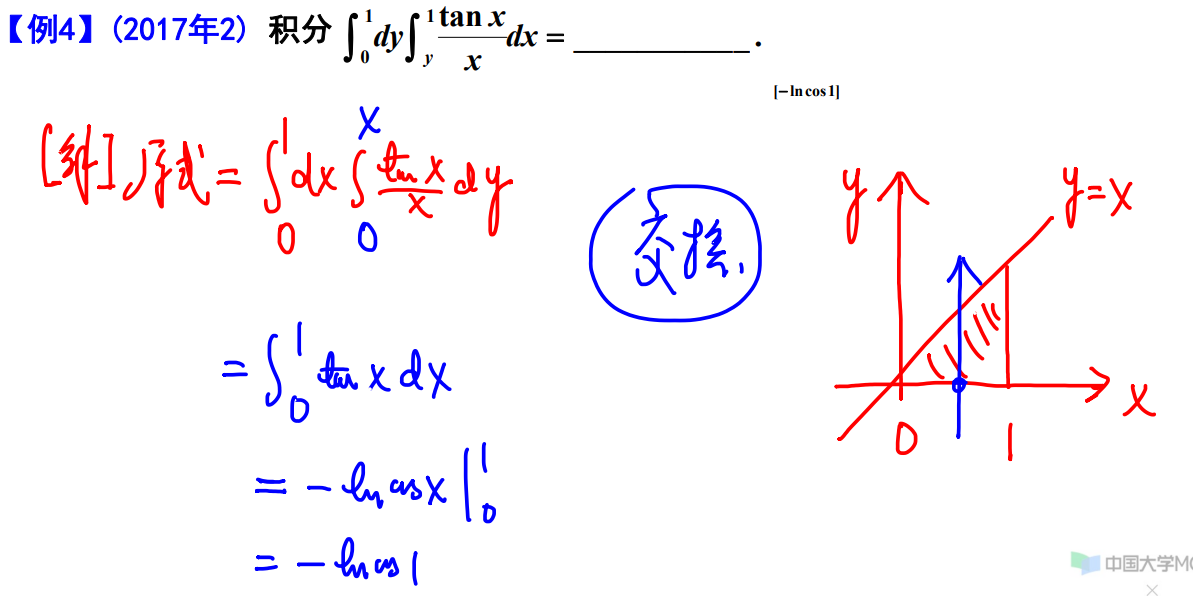 【例4】(2017年2) 积分 ∫₀¹dy∫ᵧ¹ tan x/x dx = ___________ .
[−ln cos1]
[解] 原式 = ∫₀¹dx∫₀ˣ tan x/x dy
交换.
y
y=x
= ∫₀¹ tan x dx
x
0 1
= −ln cos x |₀¹
= −ln cos 1
中国大学MO